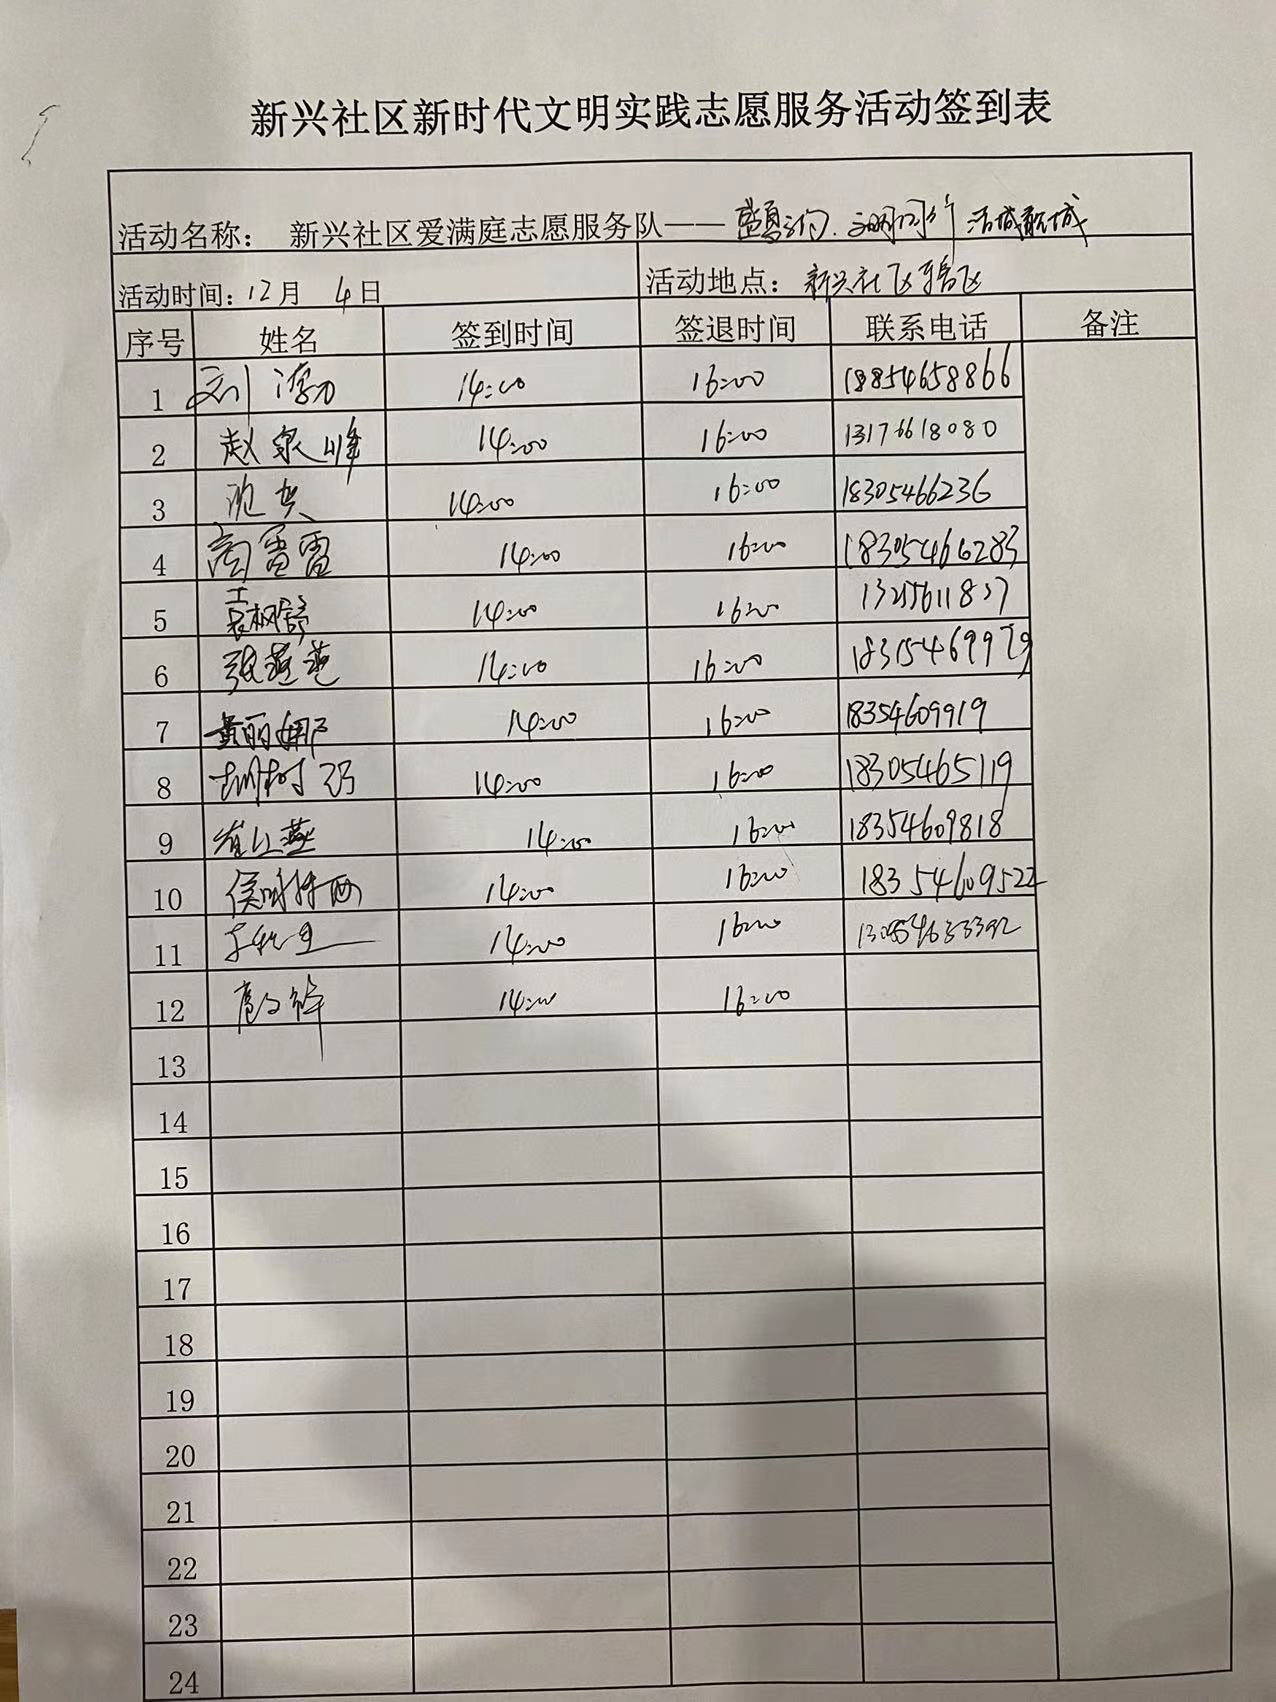 新兴社区新时代文明实践志愿服务活动签到表
活动名称： 新兴社区爱满庭志愿服务队—— 文明同行
活动时间：12月 4日 活动地点：新兴社区辖区
序号 姓名 签到时间 签退时间 联系电话 备注
1 刘 14:00 16:00 18854658866
2 赵泉峰 14:00 16:00 13176618080
3 14:00 16:00 18305466236
4 高雷雷 14:00 16:00 18305466283
5 14:00 16:00
6 张莲莲 14:00 16:00 18315469979
7 黄丽娜 14:00 16:00 18354609919
8 胡树 14:00 16:00 18305465119
9 崔红燕 14:00 16:00 18354609818
10 侯 14:00 16:00 18354609522
11 14:00 16:00
12 14:00 16:00
13
14
15
16
17
18
19
20
21
22
23
24